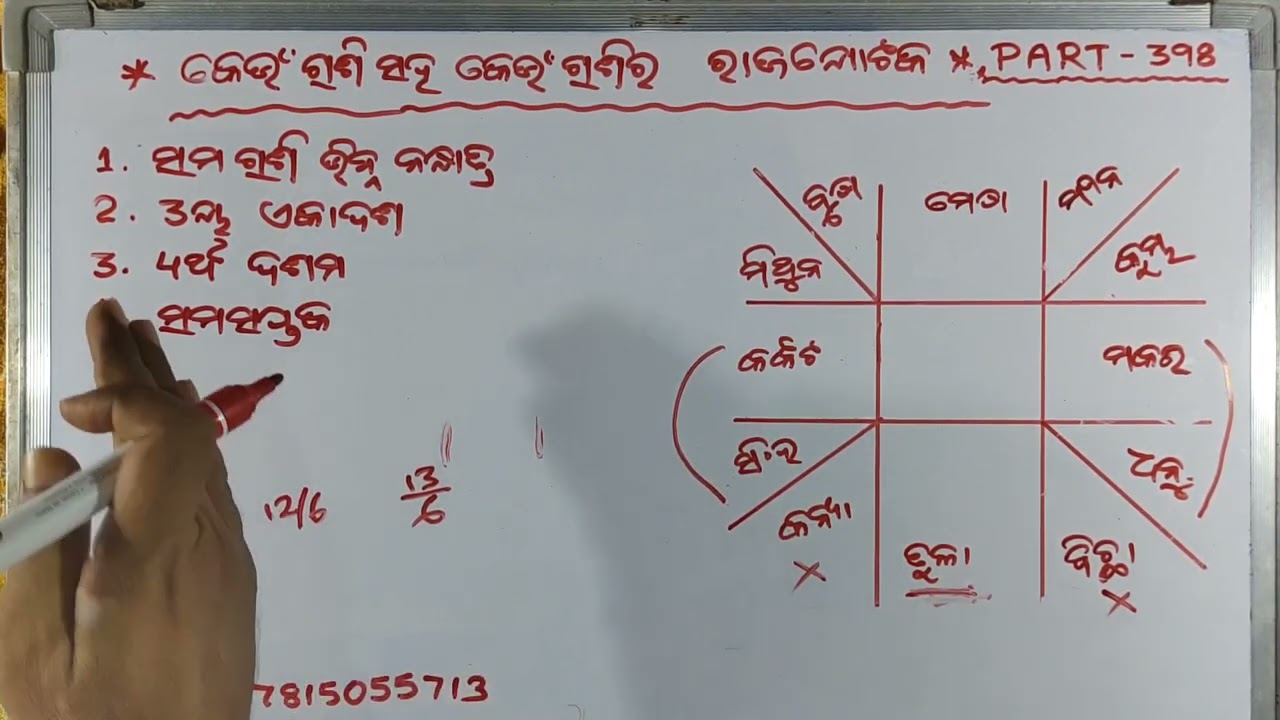 * କେଉଁ ରାଶି ସହ କେଉଁ ରାଶିର ରାଜଯୋଟକ *, PART - 398
1. ସମ ରାଶି ଭିନ୍ନ ନକ୍ଷତ୍ର
2. ୩ୟ ଏକାଦଶ
3. ୪ର୍ଥ ଦଶମ
ସମସପ୍ତକ
ବୃଷ ମେଷ ମୀନ
ମିଥୁନ କୁମ୍ଭ
କର୍କଟ ମକର
ସିଂହ ଧନୁ
କନ୍ୟା ତୁଳା ବିଛା
12/6
13
6
7815055713